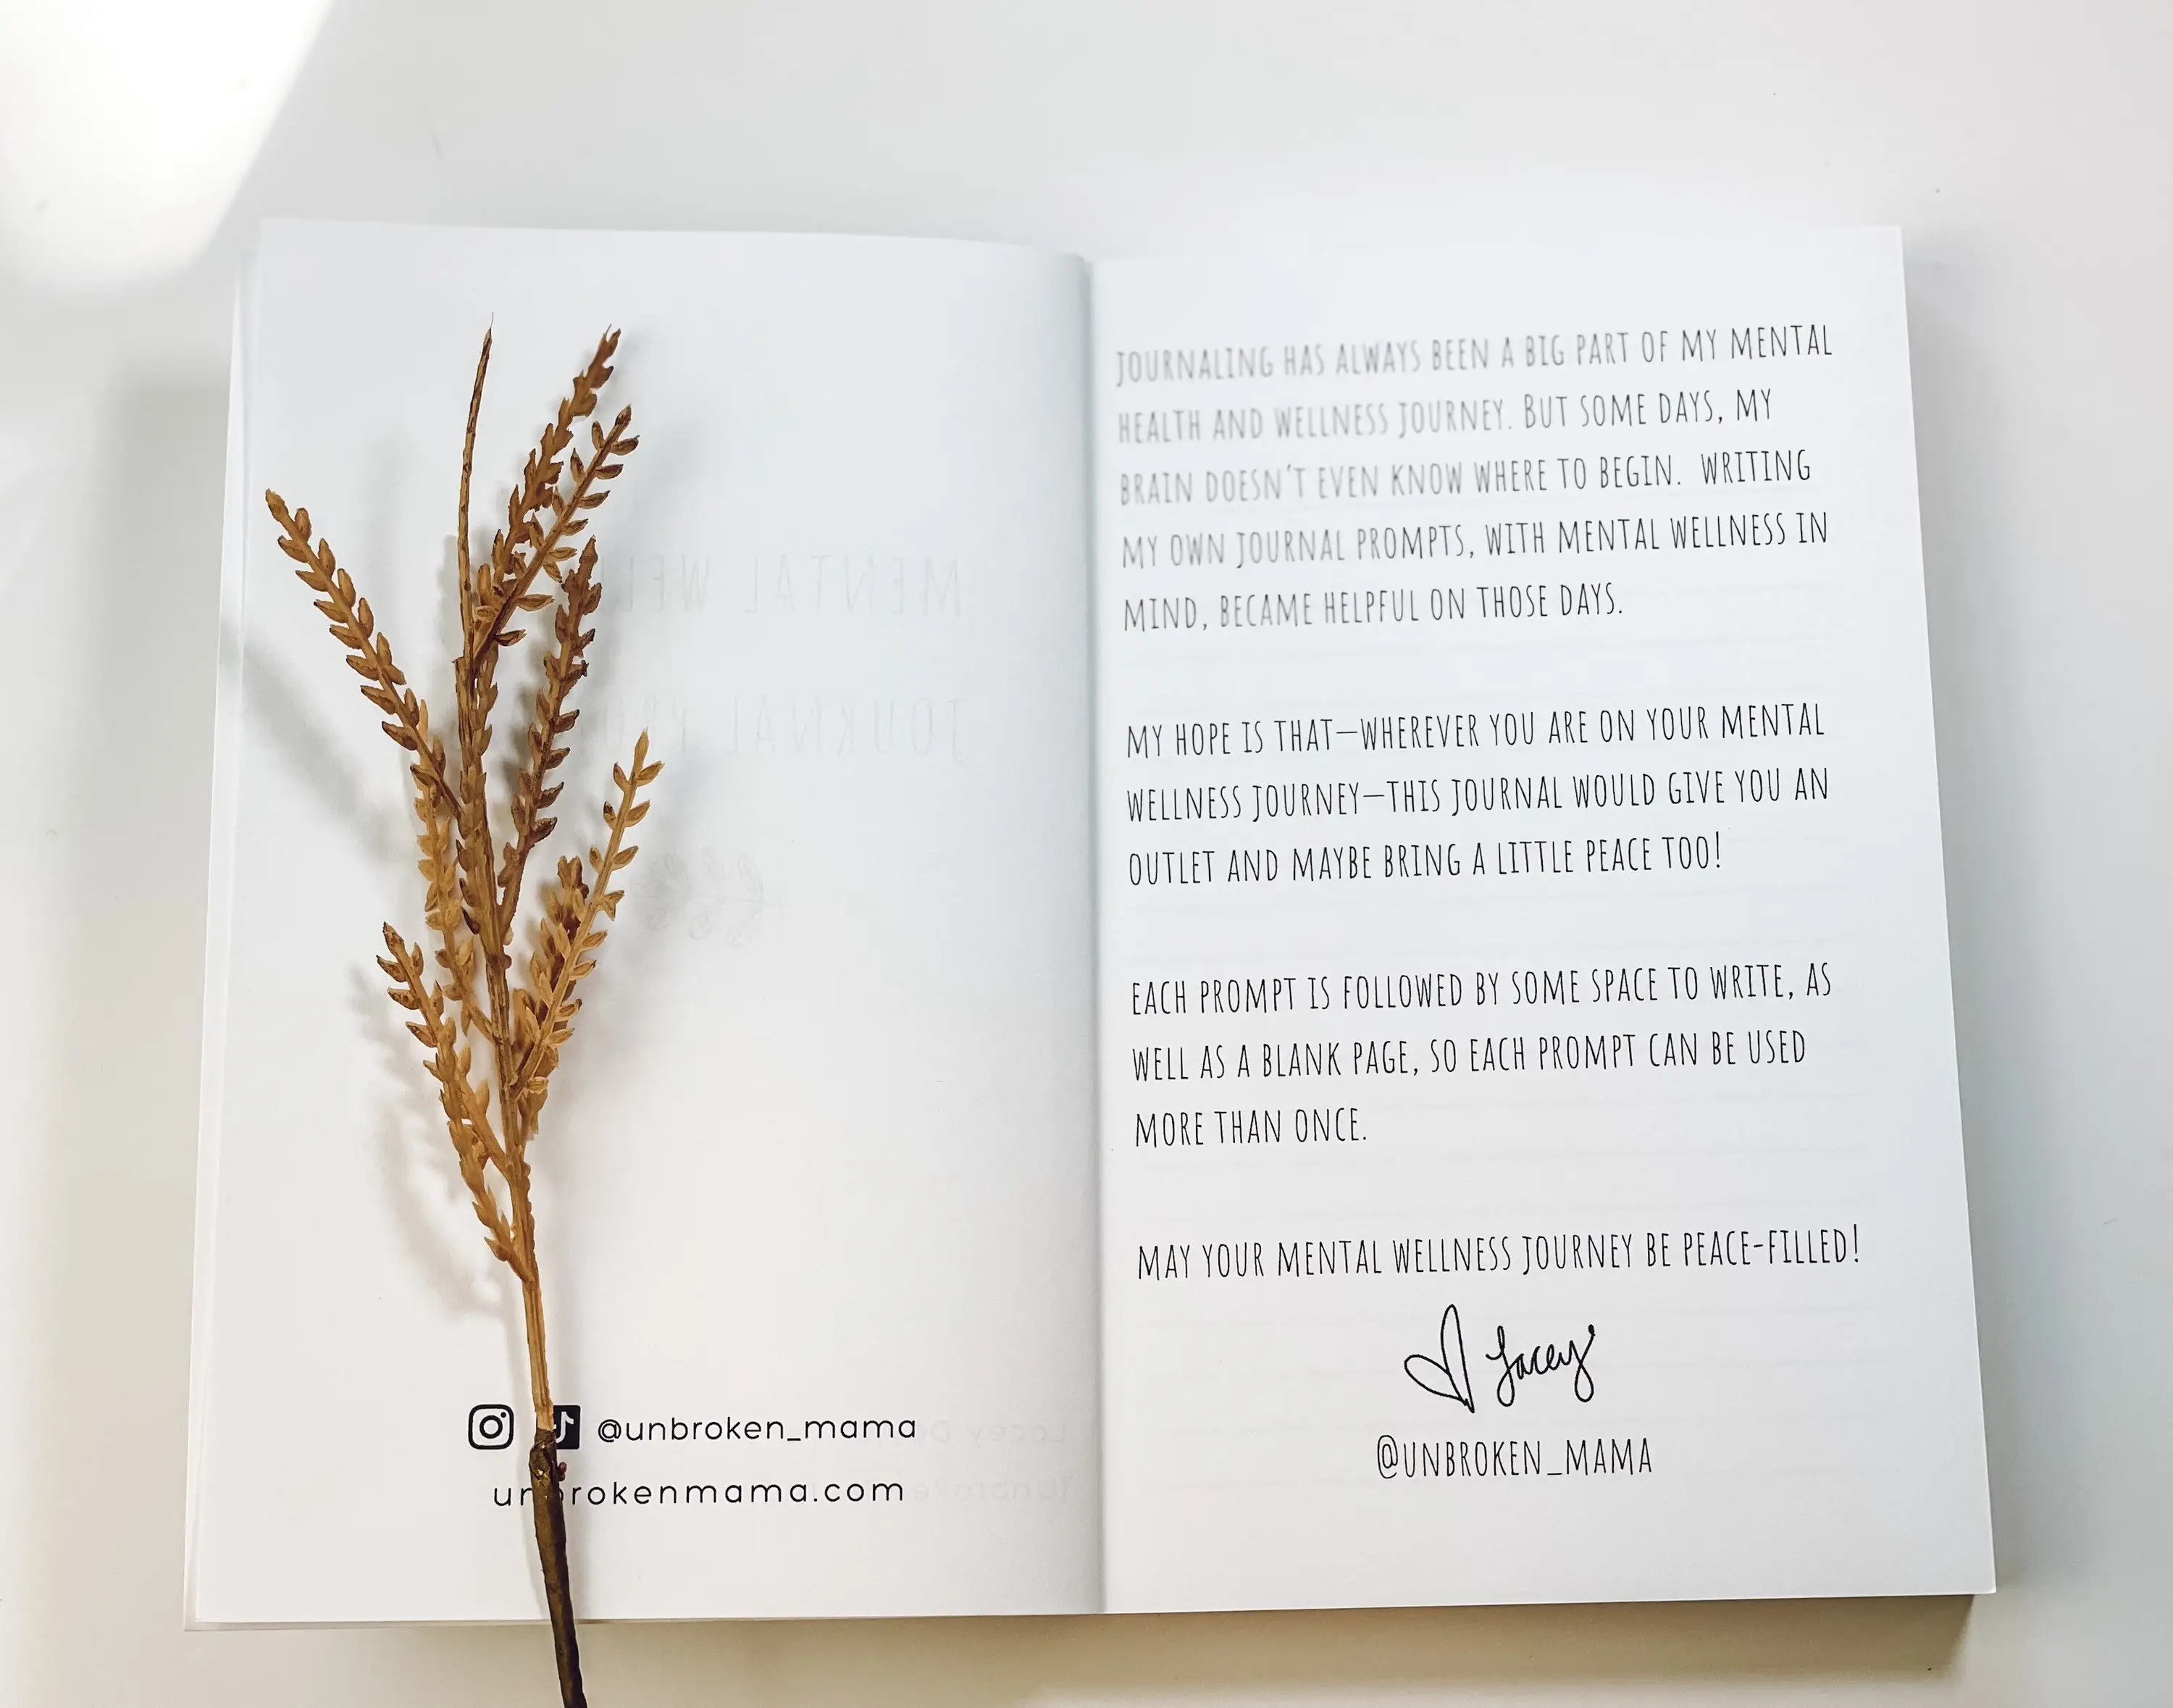 @unbroken_mama
unbrokenmama.com
JOURNALING HAS ALWAYS BEEN A BIG PART OF MY MENTAL
HEALTH AND WELLNESS JOURNEY. BUT SOME DAYS, MY
BRAIN DOESN'T EVEN KNOW WHERE TO BEGIN. WRITING
MY OWN JOURNAL PROMPTS, WITH MENTAL WELLNESS IN
MIND, BECAME HELPFUL ON THOSE DAYS.
MY HOPE IS THAT—WHEREVER YOU ARE ON YOUR MENTAL
WELLNESS JOURNEY—THIS JOURNAL WOULD GIVE YOU AN
OUTLET AND MAYBE BRING A LITTLE PEACE TOO!
EACH PROMPT IS FOLLOWED BY SOME SPACE TO WRITE, AS
WELL AS A BLANK PAGE, SO EACH PROMPT CAN BE USED
MORE THAN ONCE.
MAY YOUR MENTAL WELLNESS JOURNEY BE PEACE-FILLED!
Lacey
@UNBROKEN_MAMA